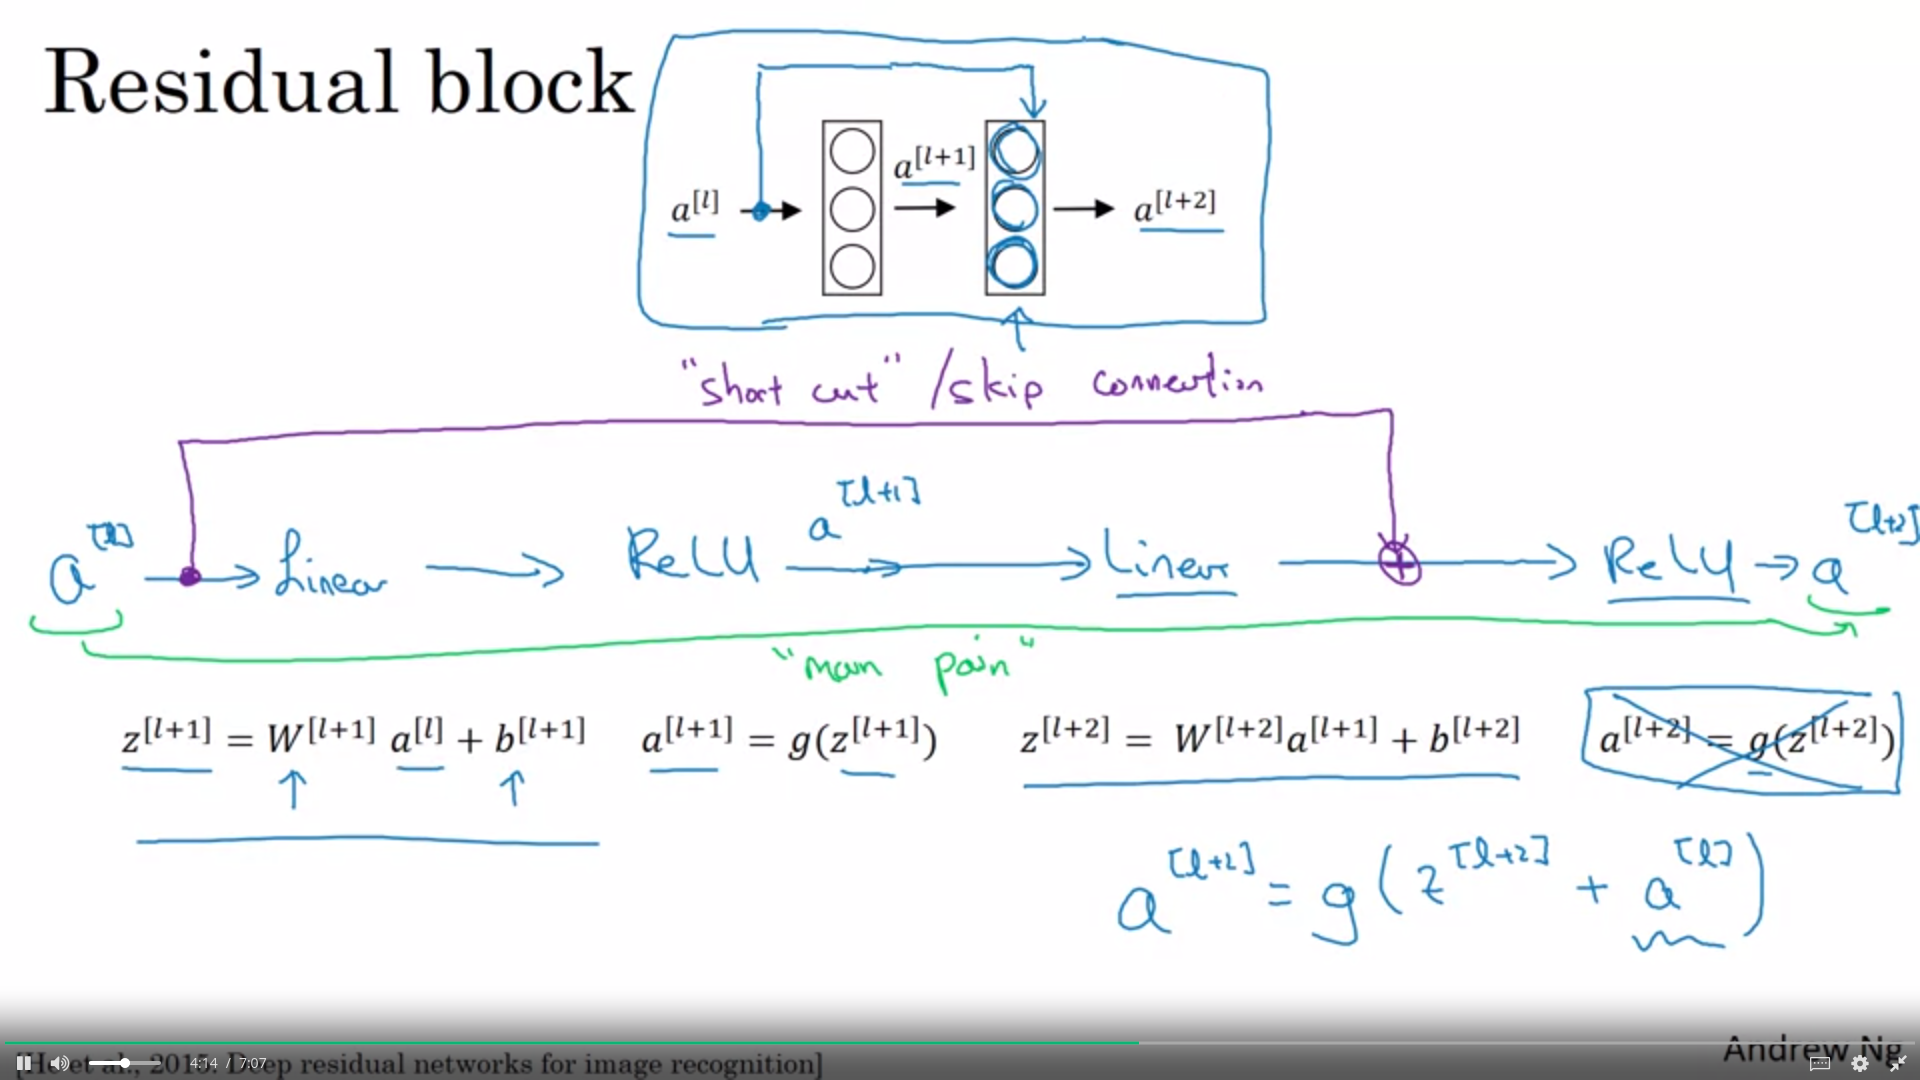 Residual block
a^[l] a^[l+1] a^[l+2]
"short cut" / skip connection
a^[l] → Linear → ReLU a^[l+1] → Linear → + → ReLU → a^[l+2]
"main path"
z^[l+1] = W^[l+1] a^[l] + b^[l+1] a^[l+1] = g(z^[l+1]) z^[l+2] = W^[l+2] a^[l+1] + b^[l+2] a^[l+2] = g(z^[l+2])
a^[l+2] = g(z^[l+2] + a^[l])
Andrew Ng
[He et al., 2015. Deep residual networks for image recognition]
4:14 / 7:07